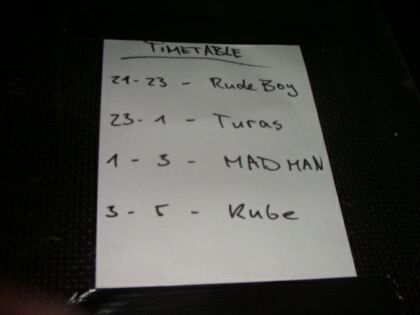 TIMETABLE
21-23 - RudeBoy
23-1 - Turas
1 - 3 - MADMAN
3 - 5 - Rube